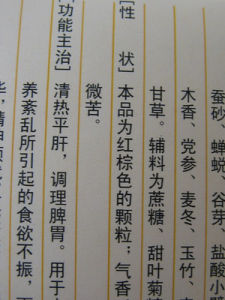 蚕砂、蝉蜕、谷芽、盐酸小
木香、党参、麦冬、玉竹、
甘草。辅料为蔗糖、甜叶菊
[性 状]本品为红棕色的颗粒;气香
微苦。
功能主治]清热平肝,调理脾胃。用于
养紊乱所引起的食欲不振,